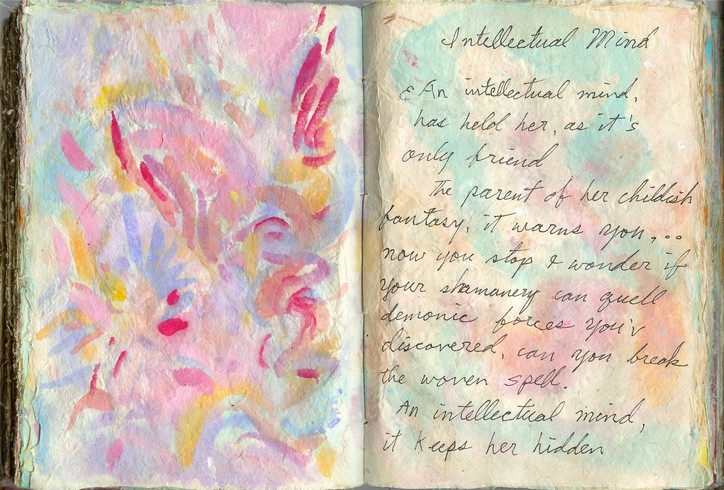 Intellectual Mind
An intellectual mind,
has held her, as it's
only friend
The parent of her childish
fantasy, it warns you,...
now you stop & wonder if
your shamanery can quell
demonic forces you'v
discovered, can you break
the woven spell.
An intellectual mind,
it keeps her hidden